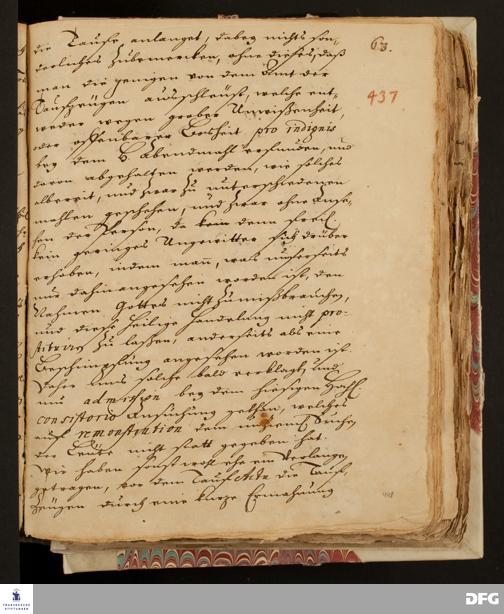 63.
437
die Taufe anlanget, dabey nichts son-
derliches zubemercken, ohne dieses, daß
man die jenigen von dem Amt der
Taufzeügen ausschleüst, welche ent-
weder wegen grober Unwißenheit,
oder offenbarer Boßheit pro indignis
bey dem H. Abendmahl erfunden, und
davon abgehalten werden, wie solches
allbereit, und zwar zu unterschiedenen
mahlen geschehen, und zwar ohne Anse-
hen der Person, da denn
kein geringes Ungewitter sich drüber
erhoben, indem mann, was unserseits
nur dahin angesehen worden ist, den
Nahmen Gottes nicht zu mißbrauchen,
und diese heilige Handelung nicht pro-
stituiren zu laßen, anderseits als eine
Beschimpfung angesehen worden ist.
Daher uns solche bald verklagt, und
um admission bey dem hiesigen
consistorio Ansuchung gethan, welches
auf remonstration dem
der Leüte nicht statt gegeben hat.
Wir haben sonst wohl ehe ein Verlangen
getragen, vor dem Tauf Actu die Tauf-
zeügen durch eine kurtze Ermahnung
FRANCKESCHE STIFTUNGEN
DFG